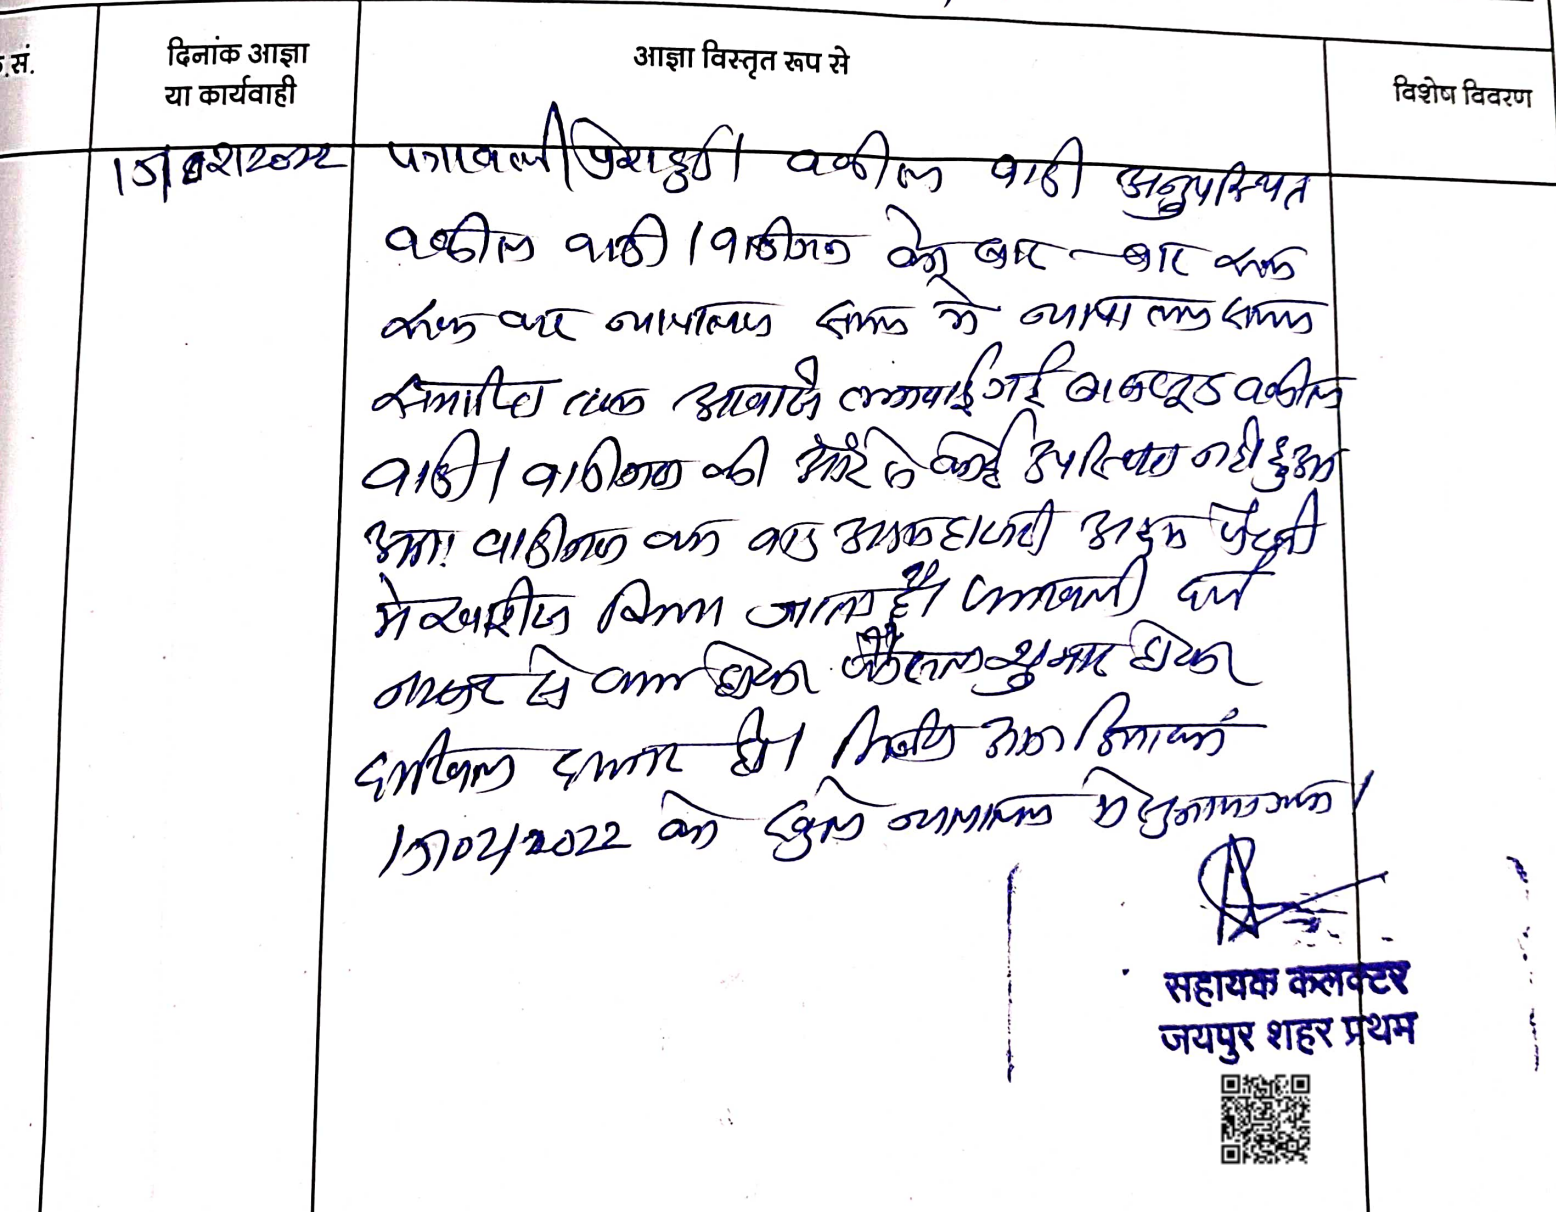 .सं.
दिनांक आज्ञा
या कार्यवाही
आज्ञा विस्तृत रूप से
विशेष विवरण
पत्रावली पेश हुई। वकील वादी अनुपस्थित
वकील वादी / वादीगण को बार-बार
न्यायालय समय में न्यायालय समय
समाप्ति तक आवाजे लगवाई गई बावजूद वकील
वादी / वादीगण की ओर से कोई उपस्थित नही हुआ
अतः वादीगण का वाद अदमहाजरी अदम पैरवी
मे खारीज किया जाता है। पत्रावली
से कम होकर फैसल शुमार होकर
दाखिल दफ्तर हो। निर्णय आज दिनांक
15/02/2022 को खुले न्यायालय मे सुनाया गया।
सहायक कलक्टर
जयपुर शहर प्रथम